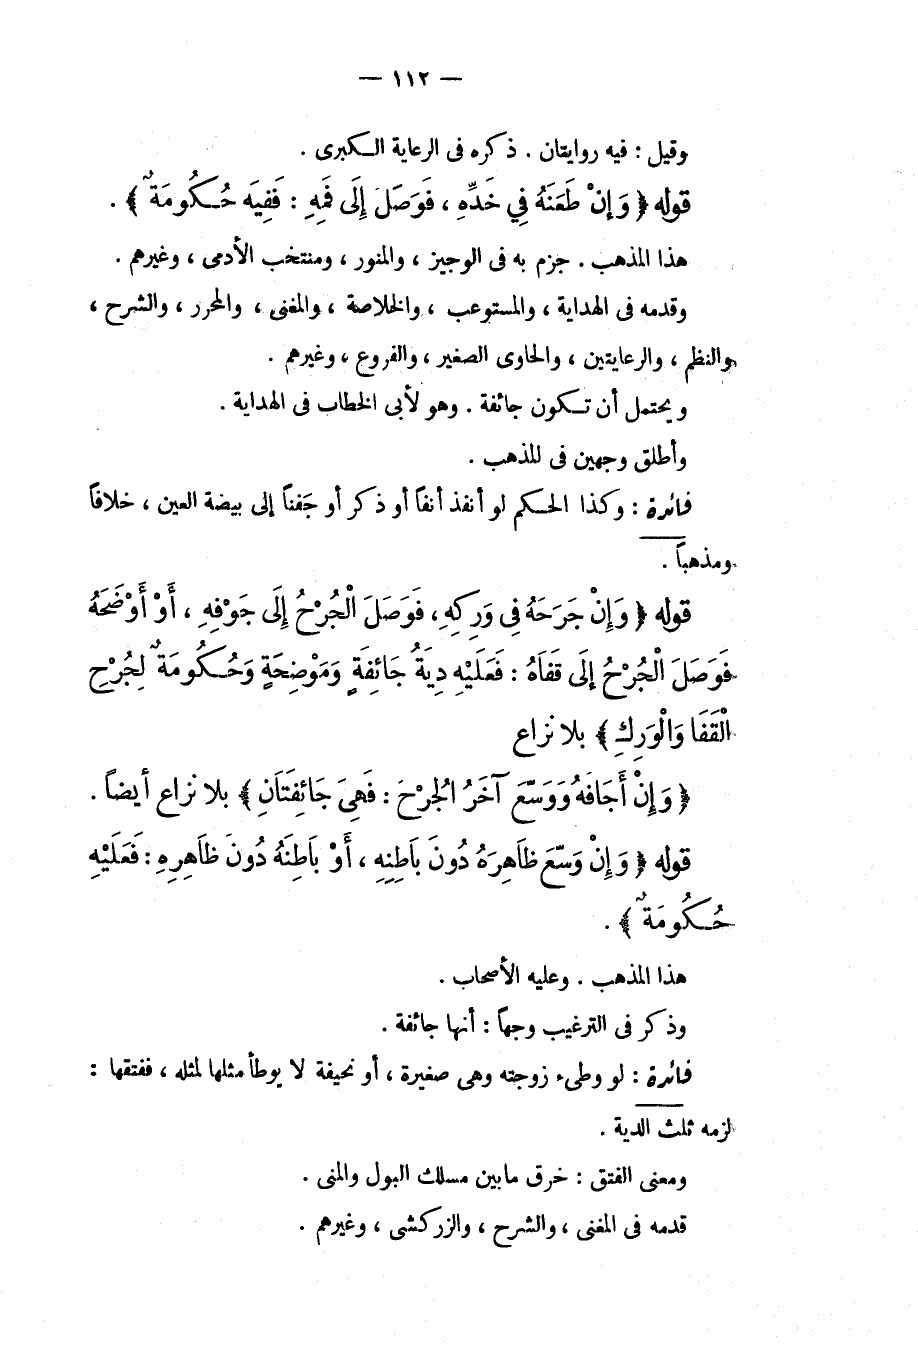 — ١١٢ —
وقيل : فيه روايتان . ذكره فى الرعاية الكبرى .
قوله ﴿ وَإِنْ طَعَنَهُ فِي خَدِّهِ ، فَوَصَلَ إِلَى فَمِهِ : فَفِيهِ حُكُومَةٌ ﴾ .
هذا المذهب . جزم به فى الوجيز ، والمنور ، ومنتخب الأدمى ، وغيرهم .
وقدمه فى الهداية ، والمستوعب ، والخلاصة ، والمغنى ، والمحرر ، والشرح ،
والنظم ، والرعايتين ، والحاوى الصغير ، والفروع ، وغيرهم .
ويحتمل أن تكون جائفة . وهو لأبى الخطاب فى الهداية .
وأطلق وجهين فى المذهب .
فائدة : وكذا الحكم لو أنفذ أنفاً أو ذكر أو جَفناً إلى بيضة العين ، خلافاً
ومذهباً .
قوله ﴿ وَإِنْ جَرَحَهُ فِى وَرِكِهِ ، فَوَصَلَ الْجُرْحُ إِلَى جَوْفِهِ ، أَوْ أَوْضَحَهُ
فَوَصَلَ الْجُرْحُ إِلَى قَفَاهُ : فَعَلَيْهِ دِيَةُ جَائِفَةٍ وَمَوْضِحَةٍ وَحُكُومَةٌ لِجُرْحِ
الْقَفَا وَالْوَرِكِ ﴾ بلا نزاع
﴿ وَإِنْ أَجَافَهُ وَوَسَّعَ آخَرُ الْجُرْحَ : فَهِىَ جَائِفَتَانِ ﴾ بلا نزاع أيضاً .
قوله ﴿ وَإِنْ وَسَّعَ ظَاهِرَهُ دُونَ بَاطِنِهِ ، أَوْ بَاطِنَهُ دُونَ ظَاهِرِهِ : فَعَلَيْهِ
حُكُومَةٌ ﴾ .
هذا المذهب . وعليه الأصحاب .
وذكر فى الترغيب وجهاً : أنها جائفة .
فائدة : لو وطىء زوجته وهى صغيرة ، أو نحيفة لا يوطأ مثلها لمثله ، ففتقها :
لزمه ثلث الدية .
ومعنى الفتق : خرق مابين مسلك البول والمنى .
قدمه فى المغنى ، والشرح ، والزركشى ، وغيرهم .